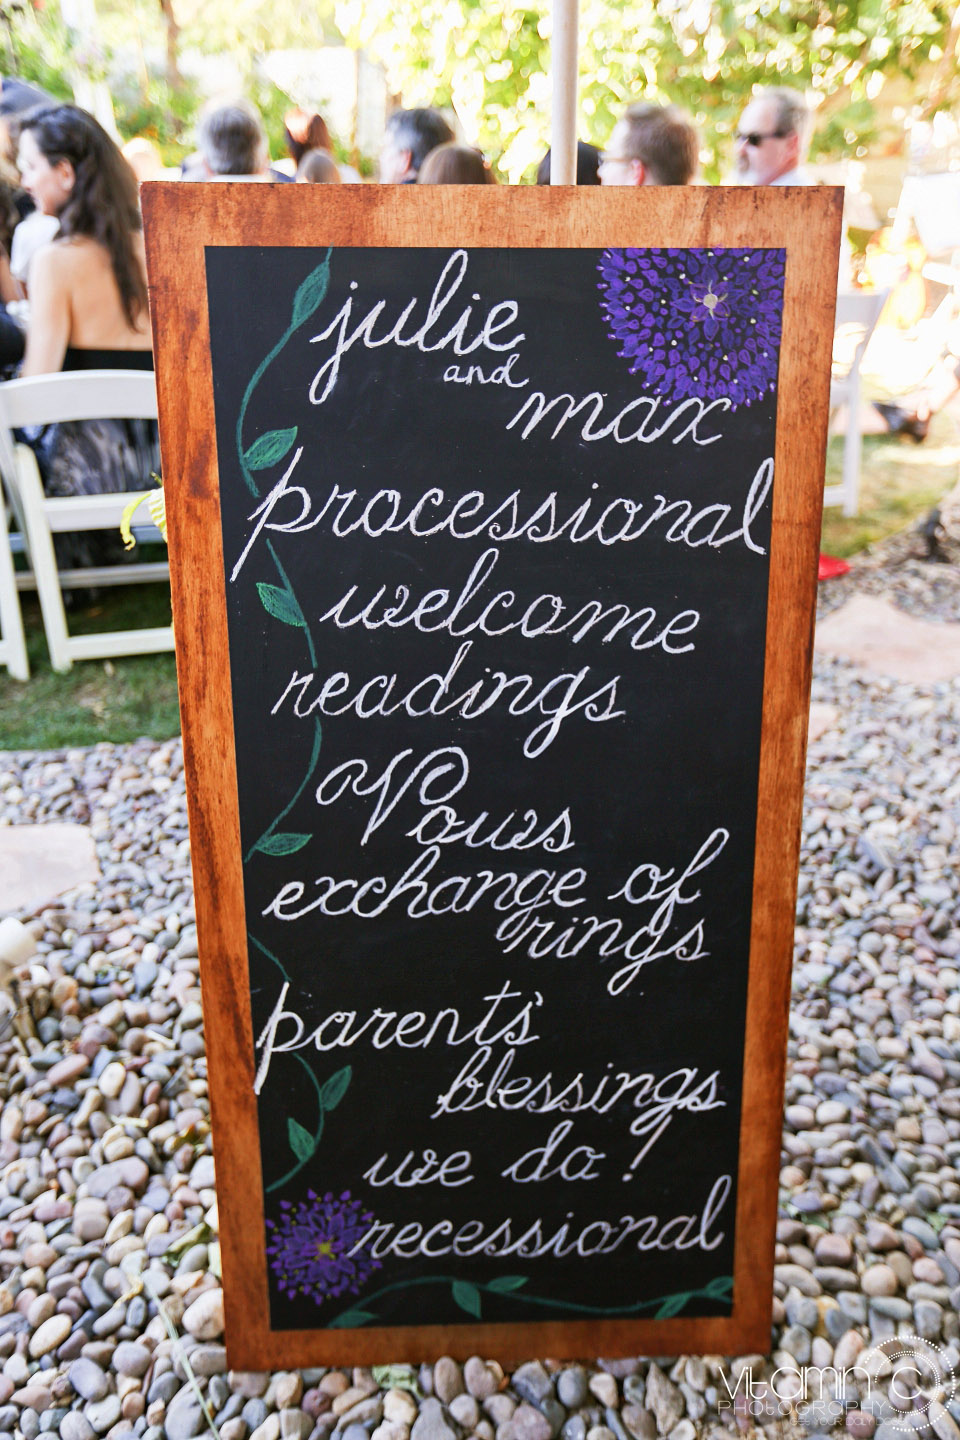 julie
and
max
processional
welcome
readings
Vows
exchange of
rings
parents'
blessings
we do!
recessional
vitamin c
PHOTOGRAPHY
GET YOUR DAILY DOSE